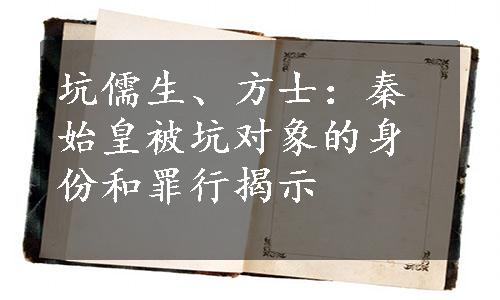 坑儒生、方士：秦
始皇被坑对象的身
份和罪行揭示